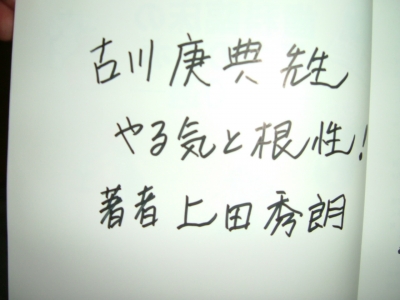 古川庚典先生
やる気と根性!
著者上田秀朗